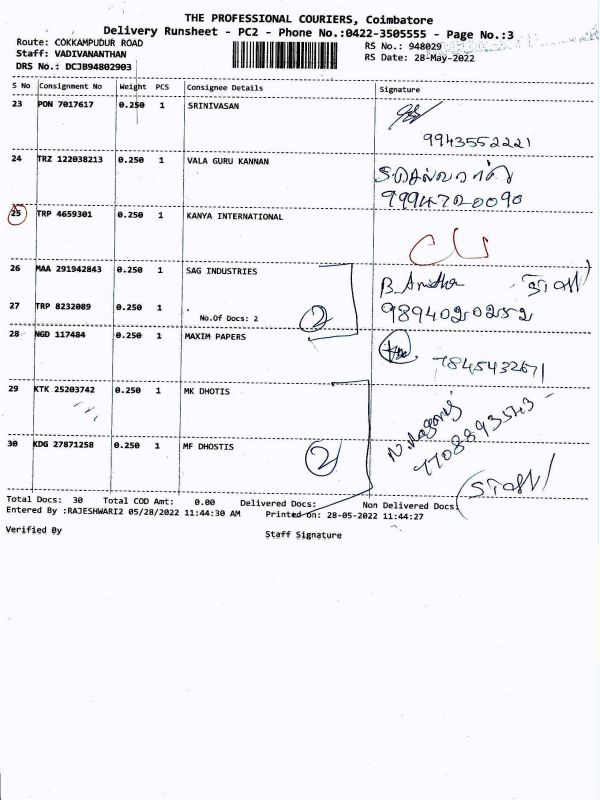 THE PROFESSIONAL COURIERS, Coimbatore
Delivery Runsheet - PC2 - Phone No.:0422-3505555 - Page No.:3
Route: COKKAMPUDUR ROAD
RS No.: 948029
Staff: VADIVANANTHAN
RS Date: 28-May-2022
DRS No.: DCJB94802903
S No Consignment No Weight PCS Consignee Details Signature
23 PON 7017617 0.250 1 SRINIVASAN
9943552221
24 TRZ 122038213 0.250 1 VALA GURU KANNAN
9994720090
25 TRP 4659301 0.250 1 KANYA INTERNATIONAL
26 MAA 291942843 0.250 1 SAG INDUSTRIES
B. Amutha
27 TRP 8232089 0.250 1 No.Of Docs: 2 2 9894020252
28 NGD 117484 0.250 1 MAXIM PAPERS
7845432671
29 KTK 25203742 0.250 1 MK DHOTIS
7708893543
30 KDG 27871258 0.250 1 MF DHOSTIS 2
Total Docs: 30 Total COD Amt: 0.00 Delivered Docs: Non Delivered Docs:
Entered By :RAJESHWARI2 05/28/2022 11:44:30 AM Printed on: 28-05-2022 11:44:27
Verified By
Staff Signature